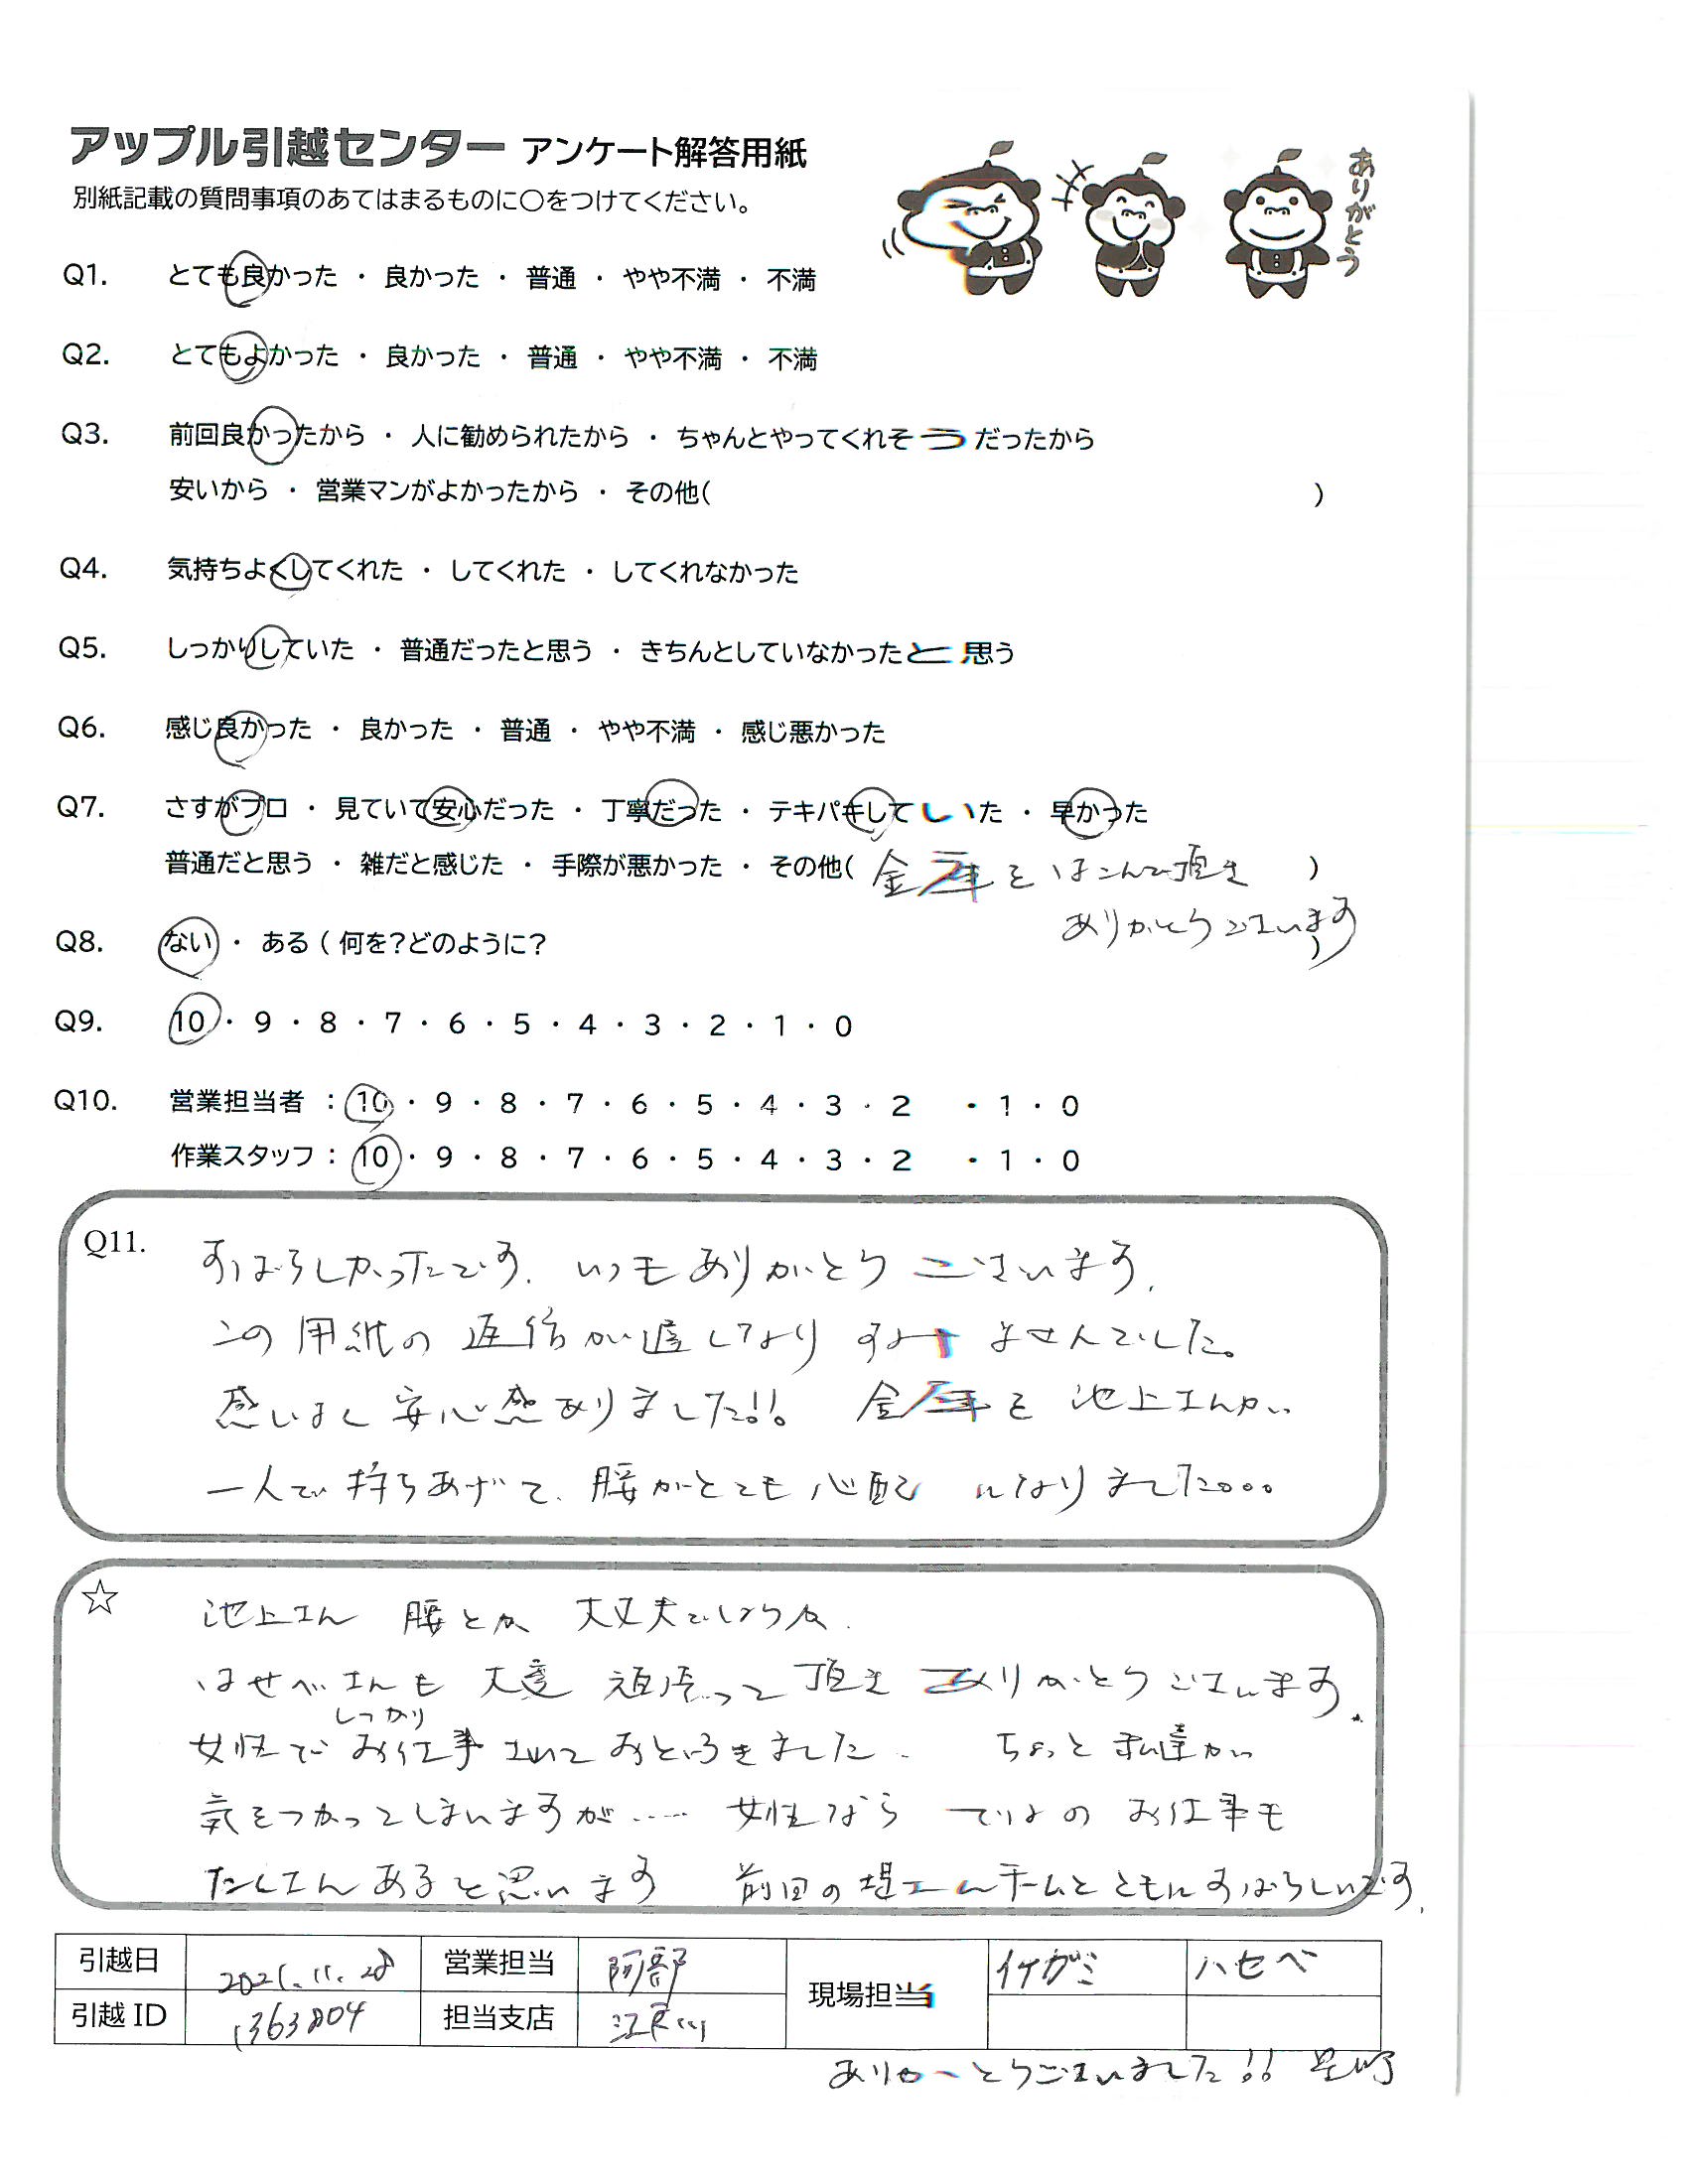 アップル引越センター アンケート解答用紙
別紙記載の質問事項のあてはまるものに○をつけてください。
ありがとう
Q1. とても良かった ・ 良かった ・ 普通 ・ やや不満 ・ 不満
Q2. とてもよかった ・ 良かった ・ 普通 ・ やや不満 ・ 不満
Q3. 前回良かったから ・ 人に勧められたから ・ ちゃんとやってくれそうだったから
安いから ・ 営業マンがよかったから ・ その他( )
Q4. 気持ちよくしてくれた ・ してくれた ・ してくれなかった
Q5. しっかりしていた ・ 普通だったと思う ・ きちんとしていなかったと思う
Q6. 感じ良かった ・ 良かった ・ 普通 ・ やや不満 ・ 感じ悪かった
Q7. さすがプロ ・ 見ていて安心だった ・ 丁寧だった ・ テキパキしていた ・ 早かった
普通だと思う ・ 雑だと感じた ・ 手際が悪かった ・ その他( 金庫をはこんで頂き )
ありがとうございます
Q8. ない ・ ある ( 何を?どのように? )
Q9. 10 ・ 9 ・ 8 ・ 7 ・ 6 ・ 5 ・ 4 ・ 3 ・ 2 ・ 1 ・ 0
Q10. 営業担当者 : 10 ・ 9 ・ 8 ・ 7 ・ 6 ・ 5 ・ 4 ・ 3 ・ 2 ・ 1 ・ 0
作業スタッフ : 10 ・ 9 ・ 8 ・ 7 ・ 6 ・ 5 ・ 4 ・ 3 ・ 2 ・ 1 ・ 0
Q11. すばらしかったです. いつもありがとうございます.
この用紙の返信が遅くなりすみませんでした。
感じよく安心感ありました!! 金庫を池上さんが
一人で持ちあげて、腰がとても心配になりました。。。
☆ 池上さん 腰とか 大丈夫でしょうか.
はせべさんも 大変 頑張って頂き ありがとうございます.
女性でしっかりお仕事されておどろきました. ちょっと私達が
気をつかってしまいますが…… 女性ならではのお仕事も
たくさんあると思います 前回の堤さんチームとともにすばらしいです.
引越日 2021.11.28 営業担当 阿部 現場担当 イケガミ ハセベ
引越ID 1363804 担当支店 江戸川
ありがとうございました!!